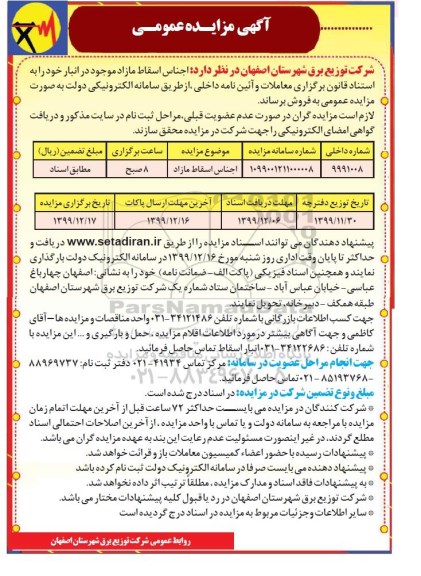 آگهی مزایده عمومی
شرکت توزیع برق شهرستان اصفهان در نظر دارد: اجناس اسقاط مازاد موجود در انبار خود را به
استناد قانون برگزاری معاملات و آئین نامه داخلی ،از طریق سامانه الکترونیکی دولت به صورت
مزایده عمومی به فروش برساند.
لازم است مزایده گران در صورت عدم عضویت قبلی،مراحل ثبت نام در سایت مذکور و دریافت
گواهی امضای الکترونیکی را جهت شرکت در مزایده محقق سازند.
شماره داخلی شماره سامانه مزایده موضوع مزایده ساعت برگزاری مبلغ تضمین(ریال)
۹۹۹۱۰۰۸ اجناس اسقاط مازاد ۸صبح مطابق اسناد
تاریخ توزیع دفترچه مهلت دریافت اسناد آخرین مهلت ارسال پاکات تاریخ برگزاری مزایده
۱۳۹۹/۱۱/۳۰ ۱۳۹۹/۱۲/۰۶ ۱۳۹۹/۱۲/۱۶ ۱۳۹۹/۱۲/۱۷
پیشنهاد دهندگان می توانند اسناد مزایده را از طریق www.setadiran.ir دریافت و
حداکثر تا پایان وقت اداری روز شنبه مورخ ۱۳۹۹/۱۲/۱۶ در سامانه الکترونیک دولت بارگذاری
نمایند و همچنین اسناد فیزیکی (پاکت الف - ضمانت نامه) خود را به نشانی: اصفهان چهارباغ
عباسی- خیابان عباس آباد - ساختمان ستاد شماره یک شرکت توزیع برق شهرستان اصفهان
طبقه همکف - دبیرخانه، تحویل نمایند.
جهت کسب اطلاعات بازرگانی با شماره تلفن ۳۴۱۲۱۴۸۶-۰۳۱ واحد مناقصات و مزایده ها - آقای
کاظمی و جهت آگاهی بیشتر در مورد اطلاعات اقلام مزایده ، حمل و بارگیری و ... این مزایده با
شماره تلفن: ۳۴۱۲۲۶۸۶-۰۳۱ انبار اسقاط تماس حاصل فرمائید.
جهت انجام مراحل عضویت در سامانه: مرکز تماس ۴۱۹۳۴-۰۲۱ دفتر ثبت نام: ۸۸۹۶۹۷۳۷
-۸۵۱۹۳۷۶۸-۰۲۱ تماس حاصل فرمائید.
مبلغ و نوع تضمین شرکت در مزایده: در اسناد درج شده است.
* شرکت کنندگان در مزایده می بایست حداکثر ۷۲ ساعت قبل از آخرین مهلت اتمام زمان
مزایده با مراجعه به سامانه دولت و یا تماس با واحد مزایده ، از آخرین اصلاحات احتمالی اسناد
مطلع گردند، در غیر اینصورت مسئولیت عدم رعایت این بند به عهده مزایده گران می باشد.
* پیشنهادات رسیده با حضور اعضاء کمیسیون معاملات باز و قرائت خواهد شد.
* پیشنهاد دهنده می بایست صرفا در سامانه الکترونیک دولت ثبت نام کرده باشد
* به پیشنهادات فاقد اسناد و مدارک مزایده ، مطلقاً ترتیب اثر داده نخواهد شد.
* شرکت توزیع برق شهرستان اصفهان در رد یا قبول کلیه پیشنهادات مختار می باشد.
* سایر اطلاعات و جزئیات مربوط به مزایده در اسناد درج گردیده است
روابط عمومی شرکت توزیع برق شهرستان اصفهان